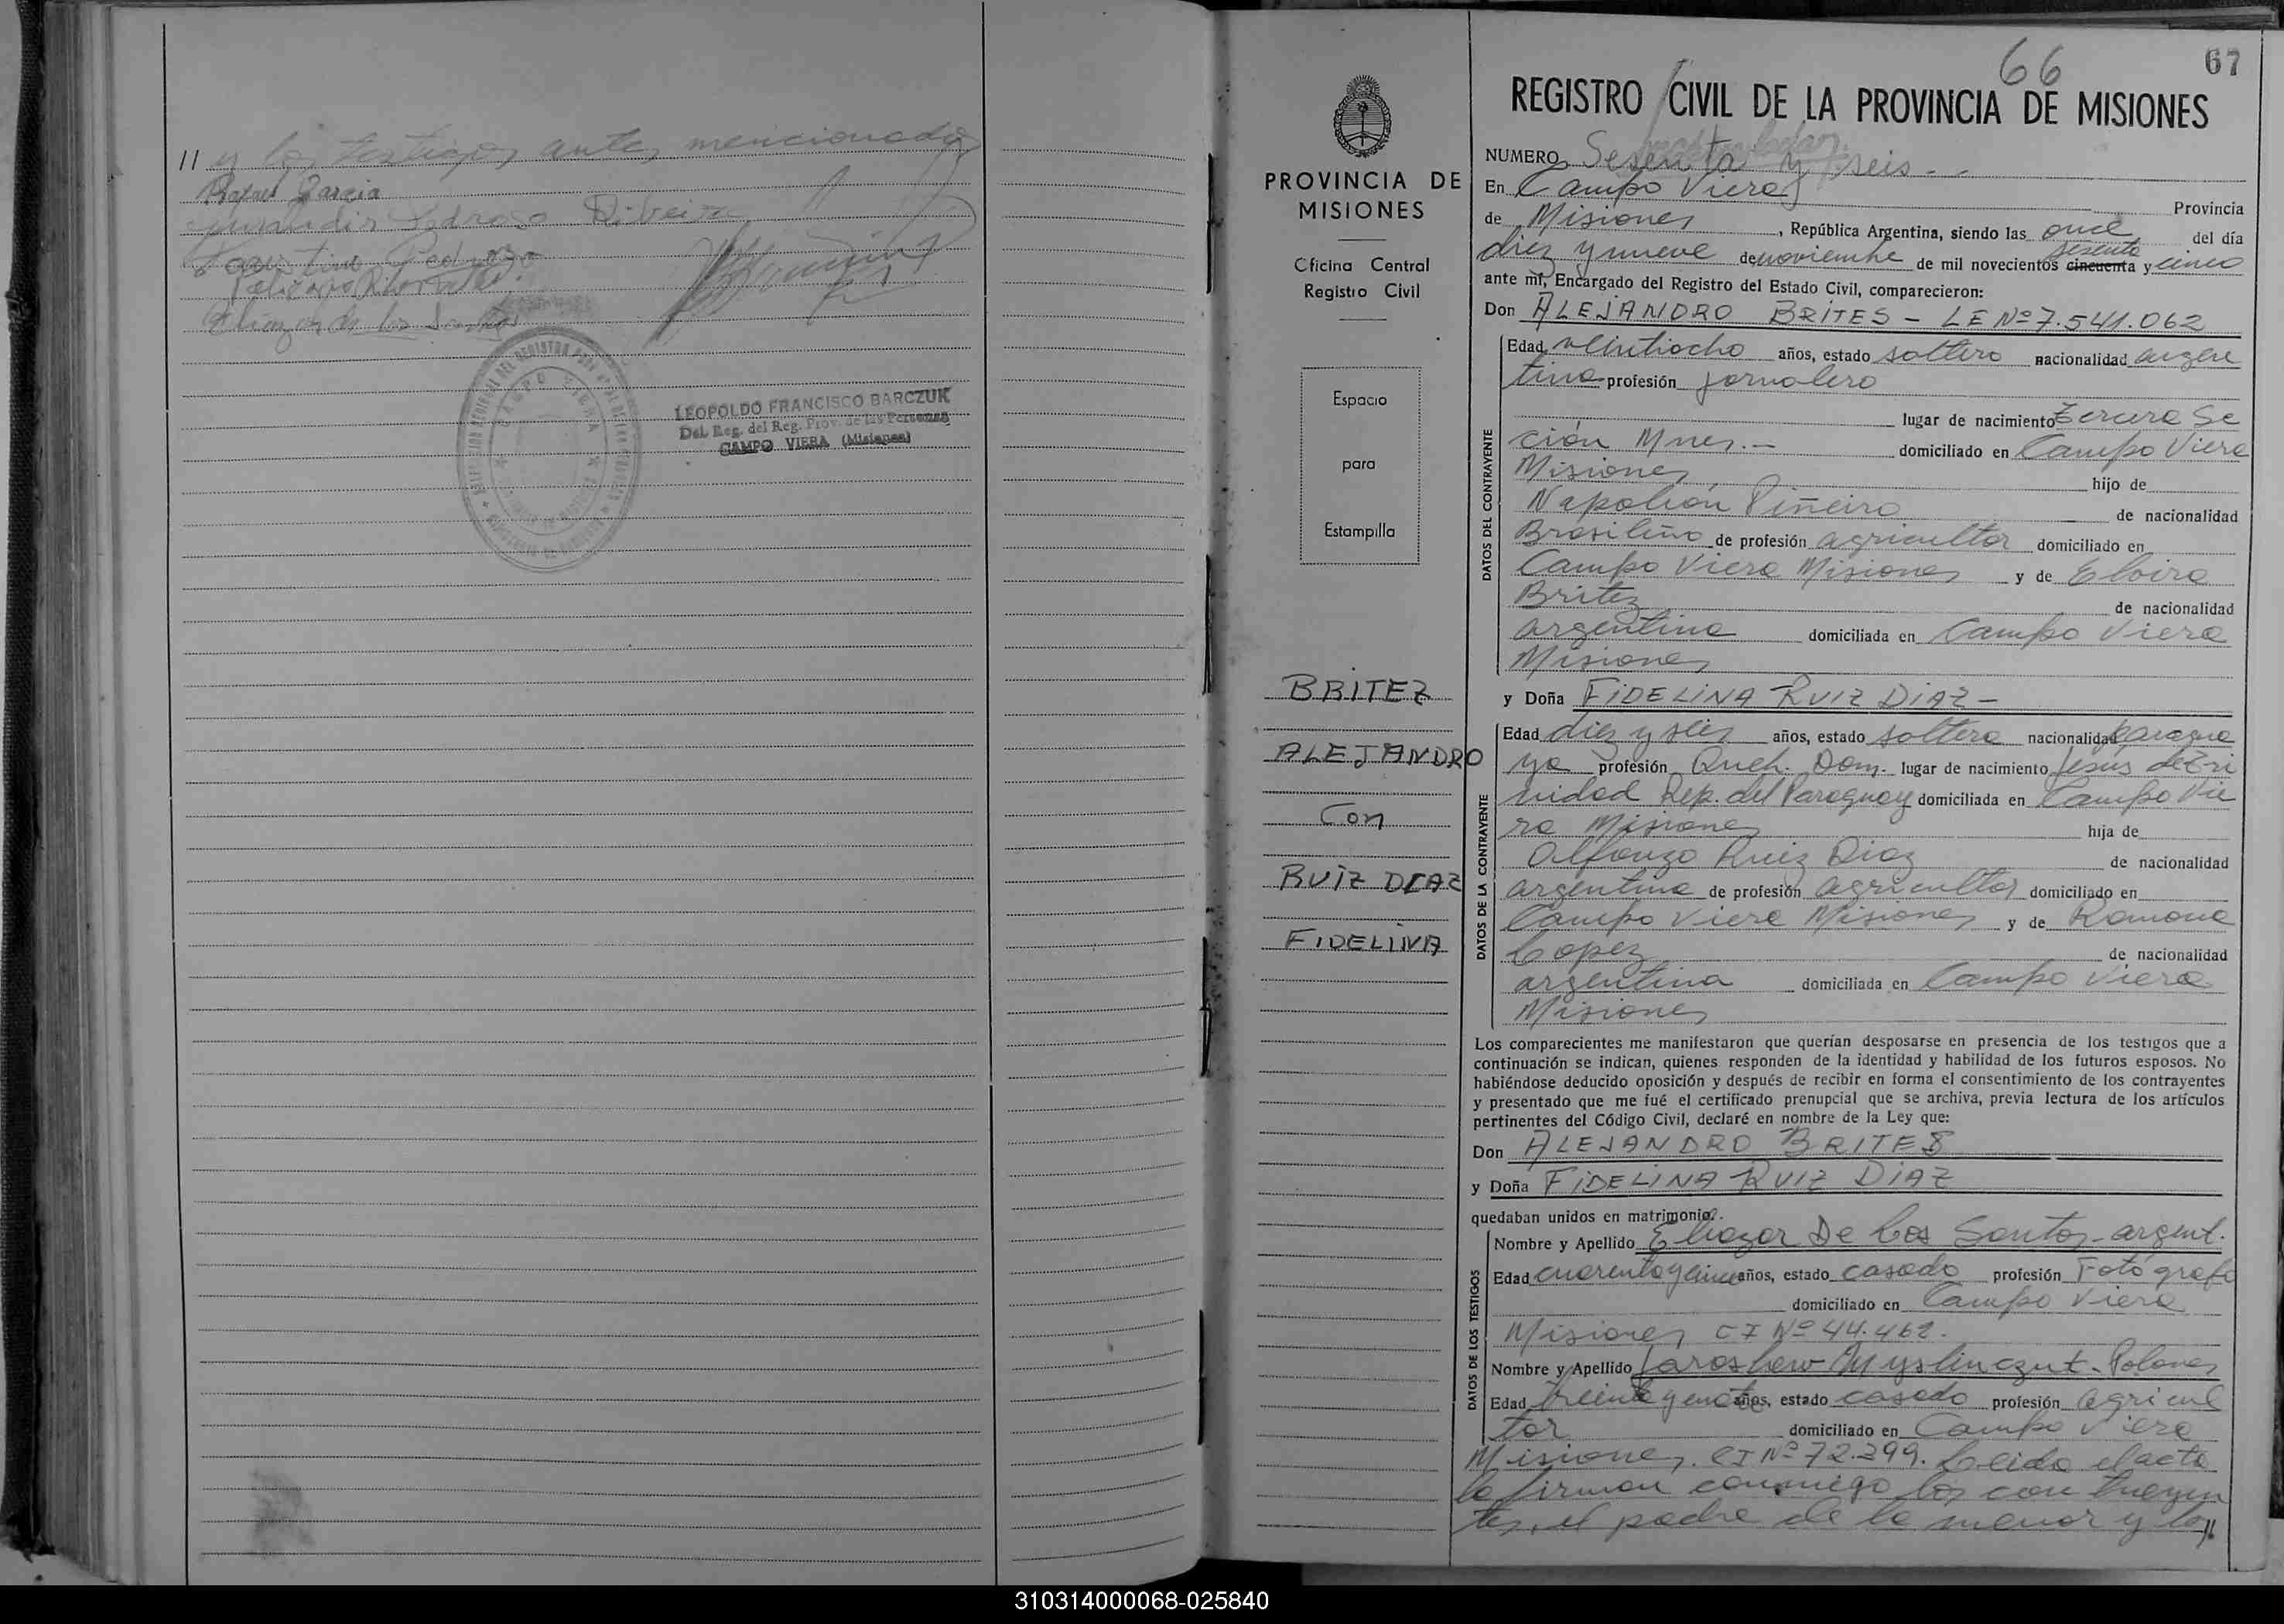 // y los testigos antes mencionados
Rafael Garcia
Pedroso Ribeiro
Eliazar de los Santos
CAMPO VIERA
LEOPOLDO FRANCISCO BARCZUK
Del. Reg. del Reg. Prov. de las Personas
CAMPO VIERA (Misiones)
PROVINCIA DE
MISIONES
Oficina Central
Registro Civil
Espacio
para
Estampilla
BRITEZ
ALEJANDRO
Con
RUIZ DIAZ
FIDELINA
66
67
REGISTRO CIVIL DE LA PROVINCIA DE MISIONES
NUMERO Sesenta y seis
En Campo Viera Provincia
de Misiones, República Argentina, siendo las once del día
diez y nueve de noviembre de mil novecientos cincuenta sesenta y cinco
ante mí, Encargado del Registro del Estado Civil, comparecieron:
Don ALEJANDRO BRITES - LE Nº 7.541.062
Edad veintiocho años, estado soltero nacionalidad argen
tina profesión jornalero
lugar de nacimiento Tercera Se
ción Mnes.- domiciliado en Campo Viera
Misiones hijo de
Napoleón Piñeiro de nacionalidad
Brasileño de profesión agricultor domiciliado en
Campo Viera Misiones y de Elvira
Britez de nacionalidad
argentina domiciliada en Campo Viera
Misiones
y Doña FIDELINA RUIZ DIAZ -
Edad diez y seis años, estado soltera nacionalidad paragua
ya profesión Queh. Dom. lugar de nacimiento Jesús de Tri
nidad Rep. del Paraguay domiciliada en Campo Vie
ra Misiones hija de
Alfonzo Ruiz Diaz de nacionalidad
argentina de profesión agricultor domiciliado en
Campo Viera Misiones y de Ramona
Lopez de nacionalidad
argentina domiciliada en Campo Viera
Misiones
DATOS DEL CONTRAYENTE
DATOS DE LA CONTRAYENTE
Los comparecientes me manifestaron que querían desposarse en presencia de los testigos que a
continuación se indican, quienes responden de la identidad y habilidad de los futuros esposos. No
habiéndose deducido oposición y después de recibir en forma el consentimiento de los contrayentes
y presentado que me fué el certificado prenupcial que se archiva, previa lectura de los artículos
pertinentes del Código Civil, declaré en nombre de la Ley que:
Don ALEJANDRO BRITES
y Doña FIDELINA RUIZ DIAZ
quedaban unidos en matrimonio.
DATOS DE LOS TESTIGOS
Nombre y Apellido Eliazar De Los Santos - argent.
Edad cuarenta y cinco años, estado casado profesión Fotógrafo
domiciliado en Campo Viera
Misiones CI Nº 44.462.
Nombre y Apellido Jaroslaw - Polones
Edad treinta y años, estado casado profesión agricul
tor domiciliado en Campo Viera
Misiones. CI Nº 72.399. Leida el acta
la firman conmigo los contrayen
tes, el padre de la menor y los//
310314000068-025840